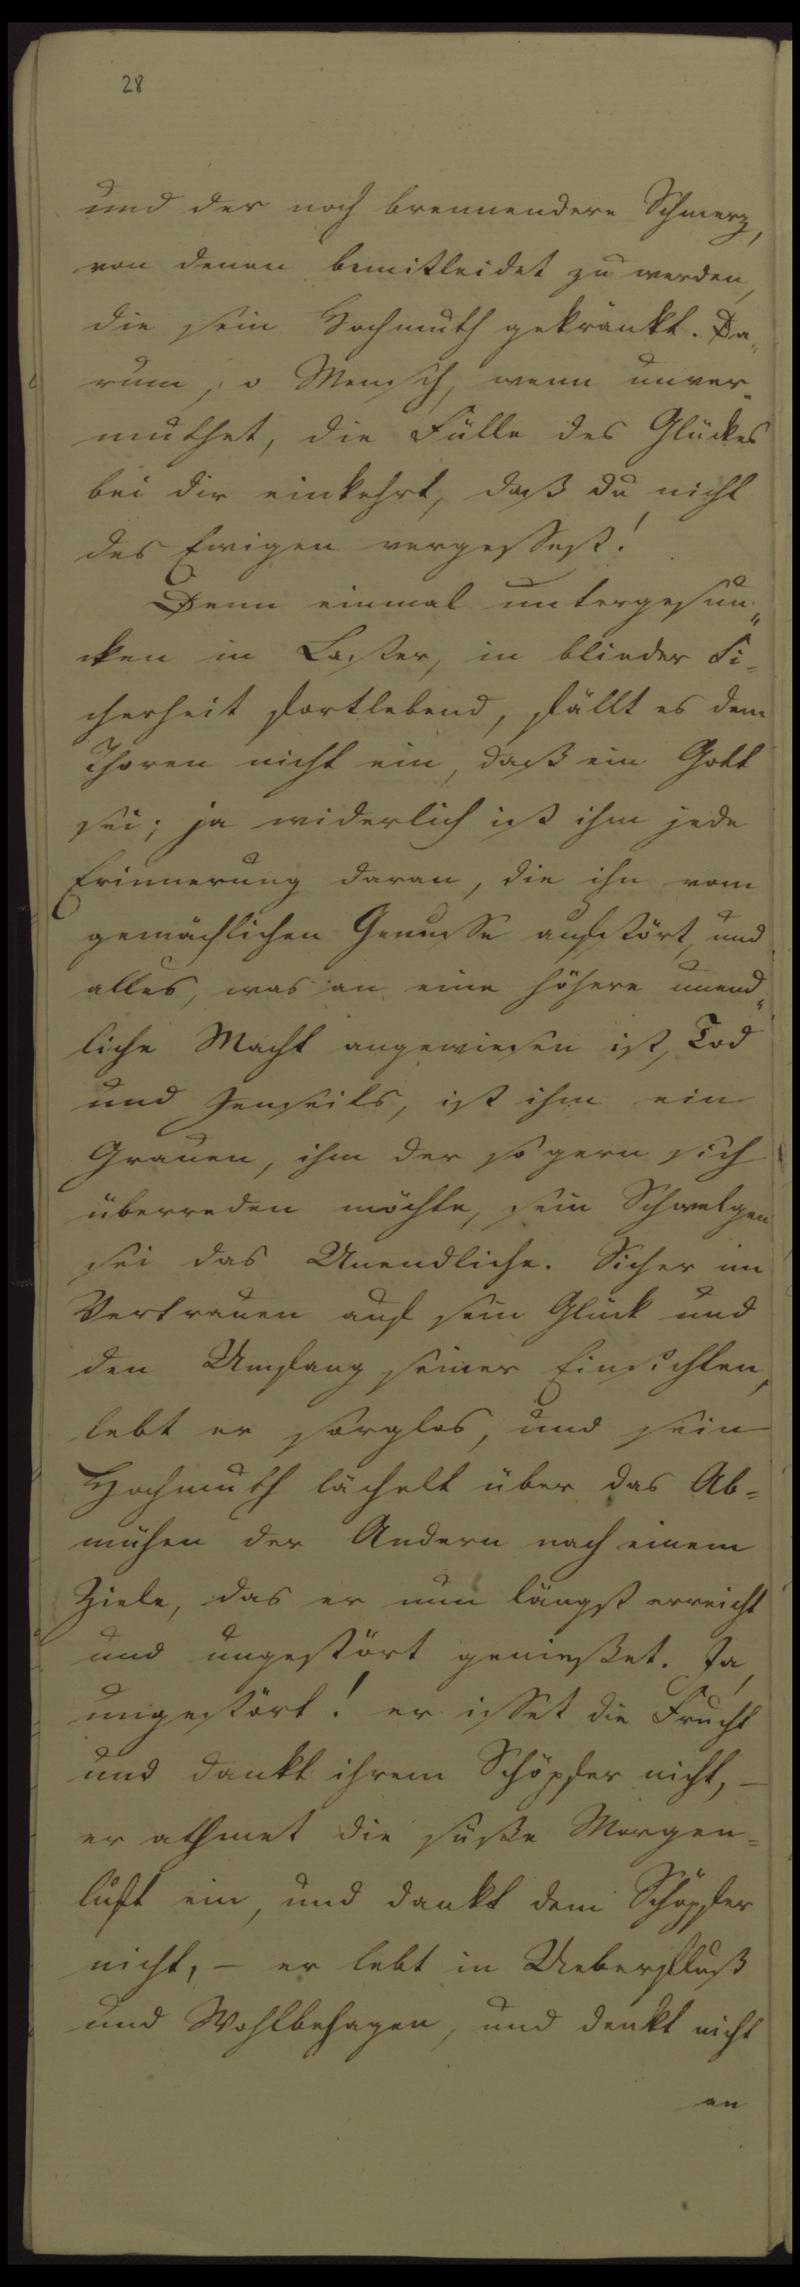 28
und der noch brennendere Schmerz,
von denen bemitleidet zu werden,
die sein Hochmuth gekränkt. Da„
rum, o Mensch, wenn unver„
muthet, die Fülle des Glückes
bei dir einkehrt, daß du nicht
des Ewigen vergessest!
Denn einmal untergesun„
cken in Laster, in blinder Si=
cherheit fortlebend, fällt es dem
Thoren nicht ein, daß ein Gott
sei; ja widerlich ist ihm jede
Erinnerung daran, die ihn vom
gemächlichen Genusse aufstört, und
alles, was an eine höhere unend„
liche Macht angewiesen ist, Tod
und Jenseits, ist ihm ein
Grauen, ihm der so gern sich
überreden möchte, sein Schwelgen
sei das Unendliche. Sicher im
Vertrauen auf sein Glück und
den Umfang seiner Einsichten,
lebt er sorglos, und sein
Hochmuth lächelt über das Ab=
mühen der Andern nach einem
Ziele, das er nun längst erreicht
und ungestört genießet. Ja,
ungestört! er isset die Frucht
und dankt ihrem Schöpfer nicht, —
er athmet die süße Morgen=
luft ein, und dankt dem Schöpfer
nicht, — er lebt in Ueberfluß
und Wohlbehagen, und denkt nicht
an